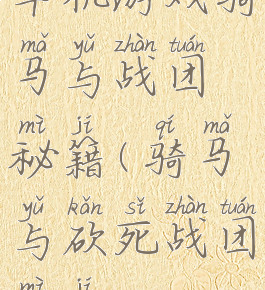 单机游戏骑
mǎ yǔ zhàn tuán
马与战团
mì jí qí mǎ
秘籍(骑马
yǔ kǎn sǐ zhàn tuán
与砍死战团
mì jí